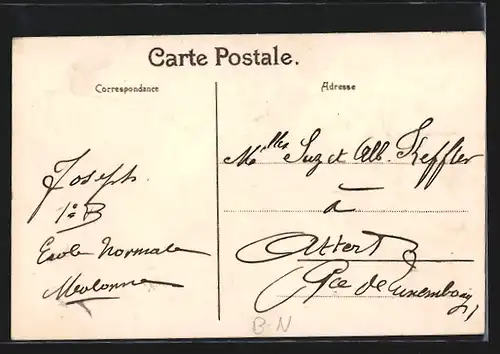 Carte Postale.
Correspondance
Adresse
Joseph.
1º B
Ecole Normale
Malonne
Melles Suz et Alb. Keffler
à
Attert
Pce de Luxembourg
B-N